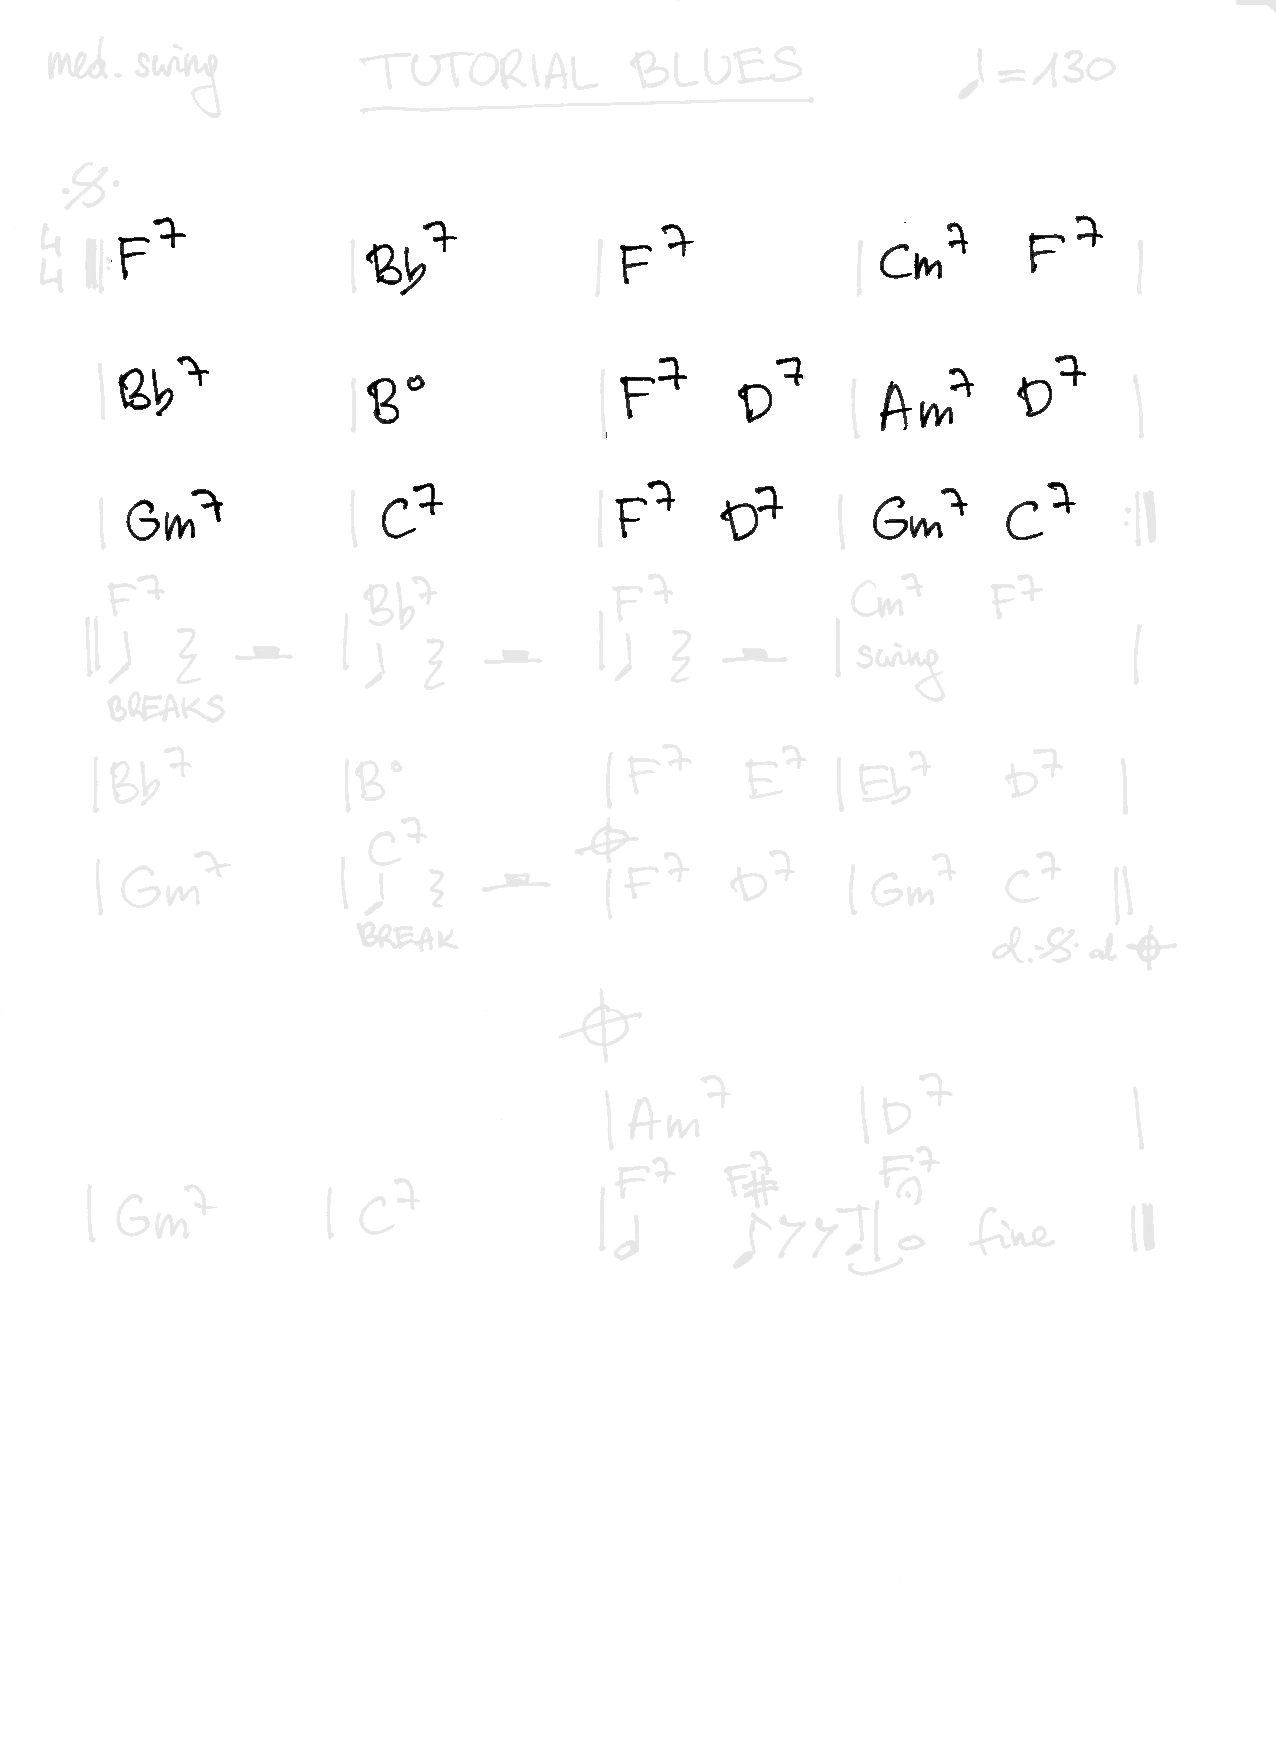 med. swing TUTORIAL BLUES ♩=130
𝄋
4/4 F7 | Bb7 | F7 | Cm7 F7 |
| Bb7 | B° | F7 D7 | Am7 D7 |
| Gm7 | C7 | F7 D7 | Gm7 C7 :||
F7 Bb7 F7 Cm7 F7
swing
BREAKS
| Bb7 | B° | F7 E7 | Eb7 D7 |
C7
| Gm7 | F7 D7 | Gm7 C7 ||
BREAK d.𝄋. al 𝄌
𝄌
| Am7 | D7 |
F7 F#7 F7
| Gm7 | C7 fine